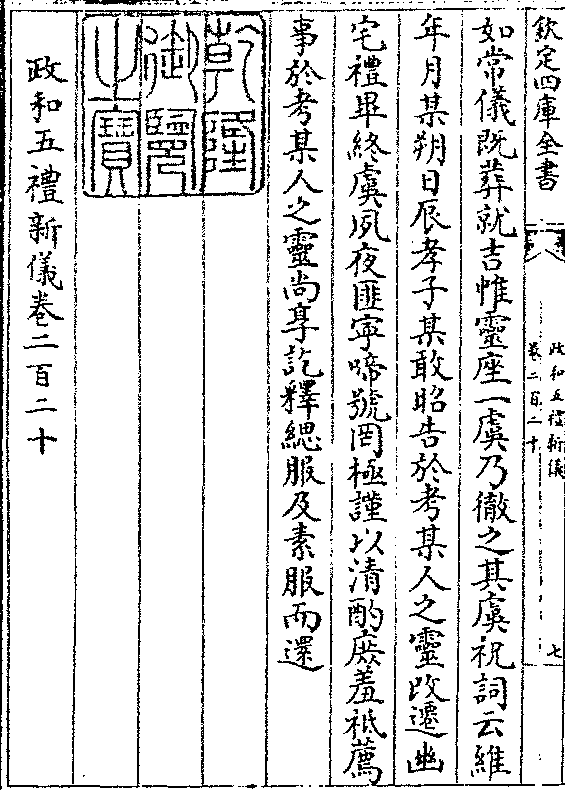 欽定四庫全書
政和五禮新儀
卷二百二十
七
如常儀既葬就吉帷靈座一虞乃徹之其虞祝詞云維
年月某朔日辰孝子某敢昭告於考某人之靈改遷幽
宅禮畢終虞夙夜匪寧啼號罔極謹以清酌庶羞祗薦
事於考某人之靈尚享訖釋緦服及素服而還
乾隆
御覽
之寶
政和五禮新儀卷二百二十